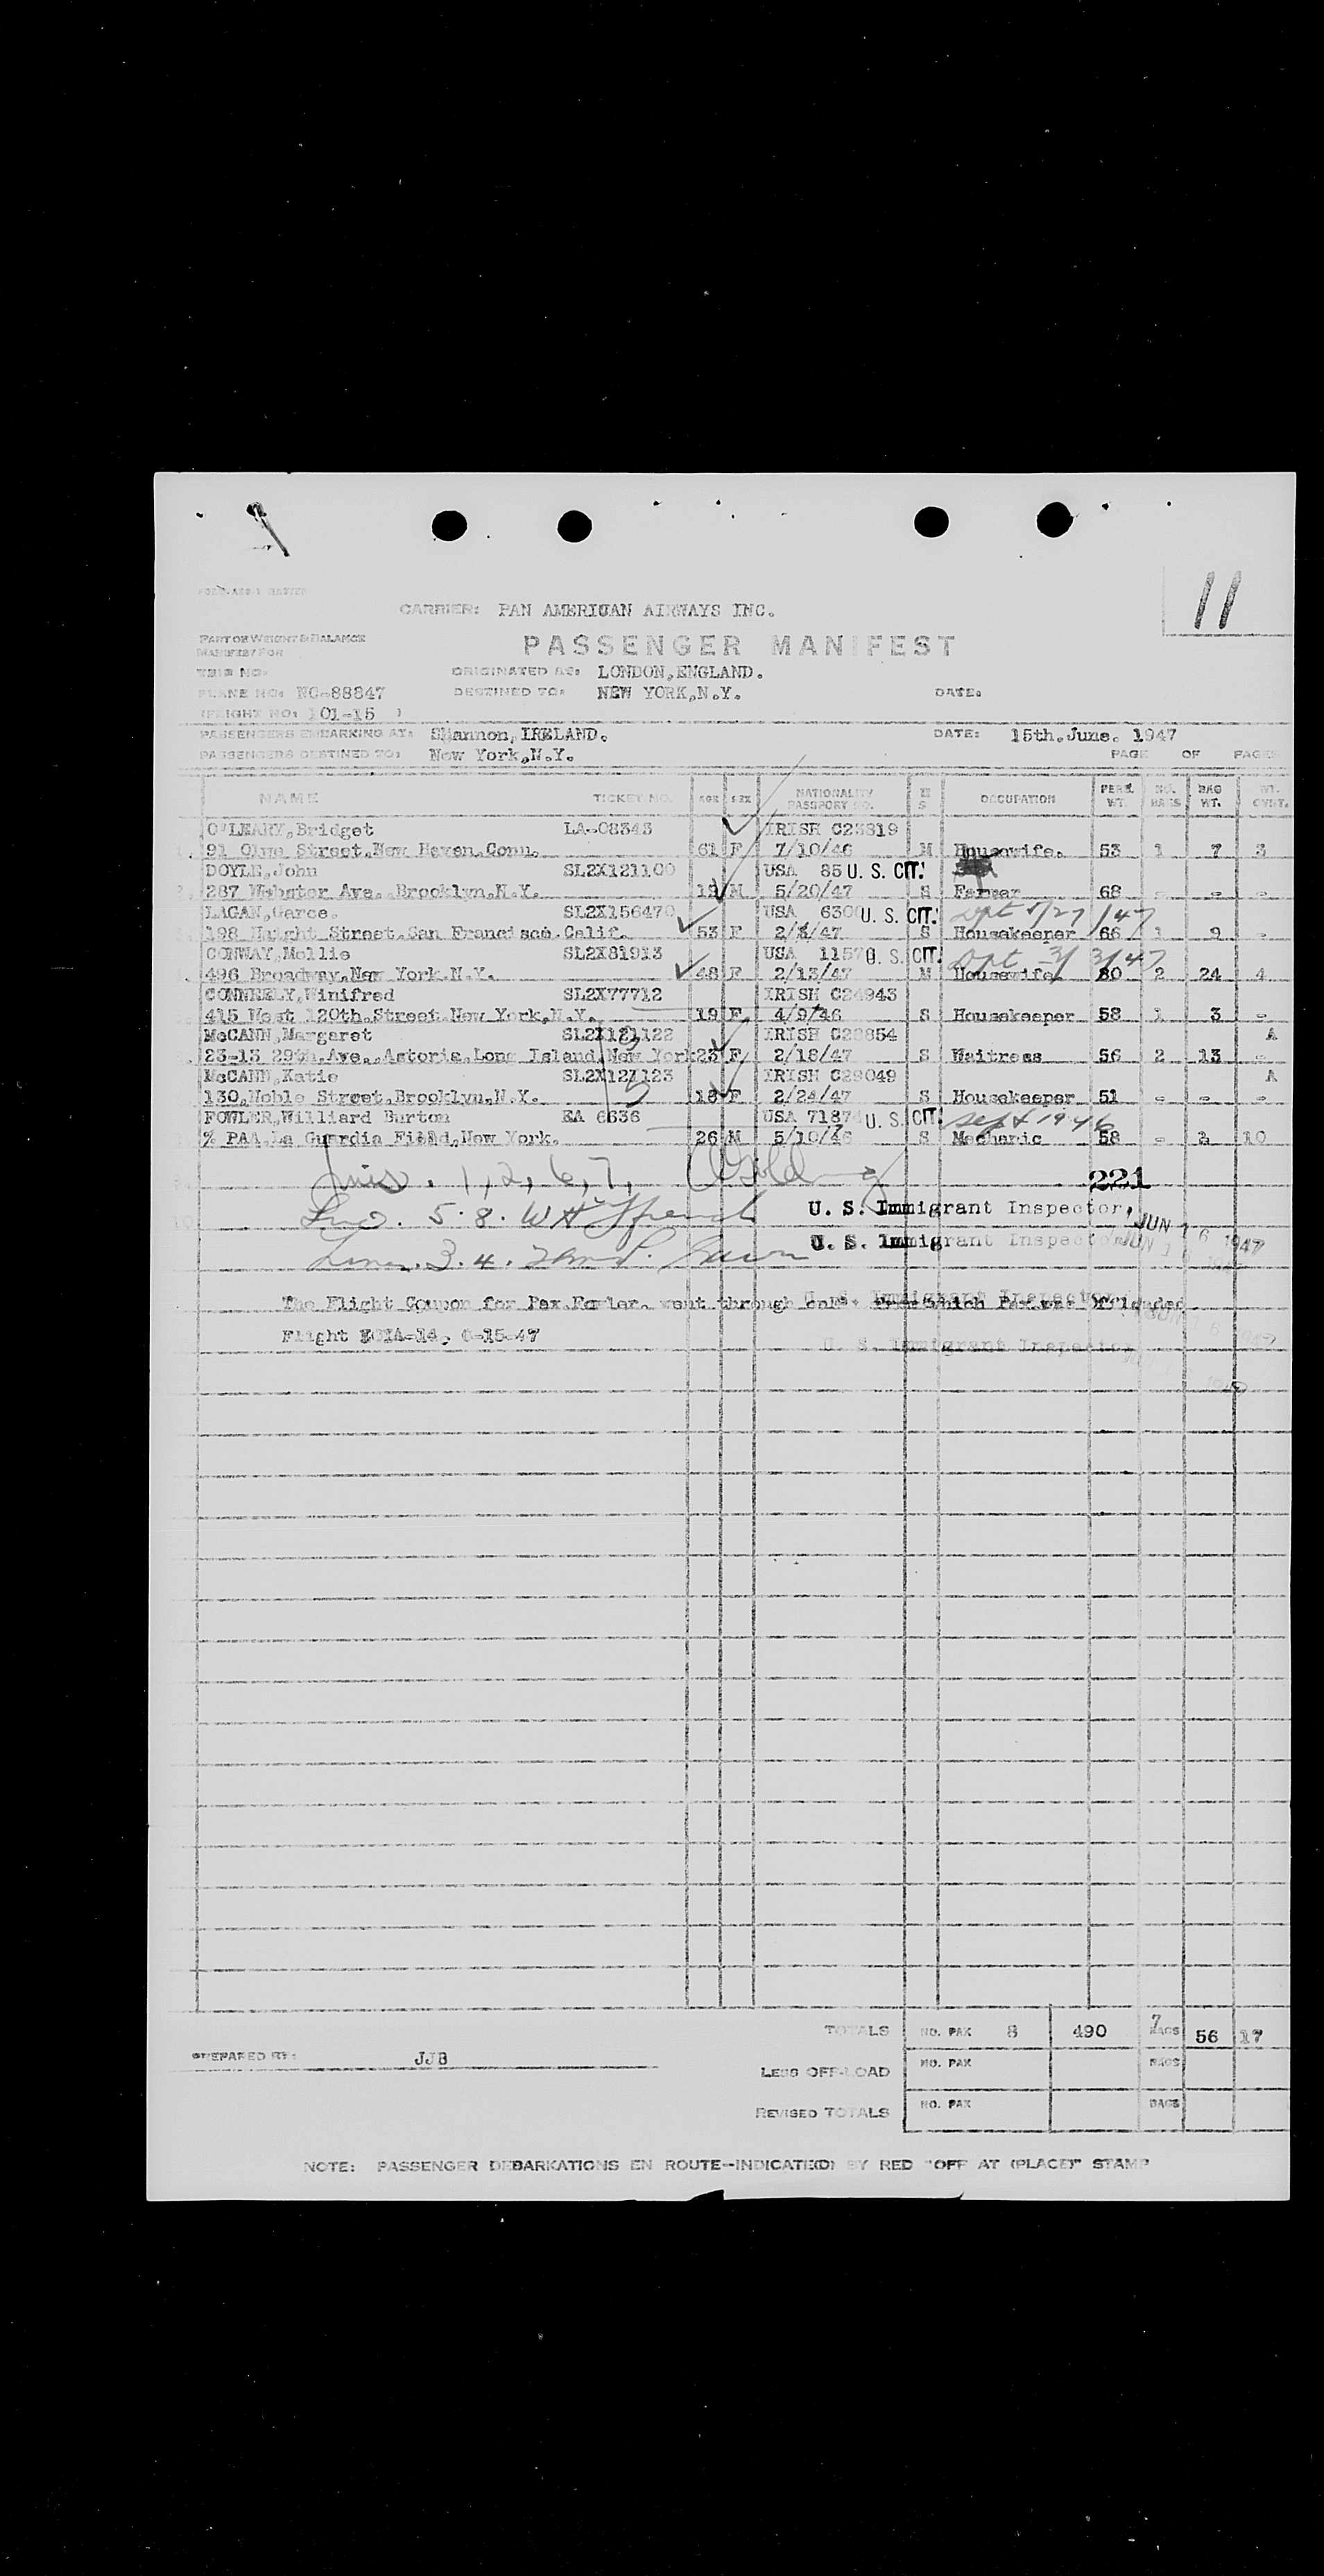 11
CARRIER: PAN AMERICAN AIRWAYS INC.
PART OF WEIGHT & BALANCE
MANIFEST FOR
PASSENGER MANIFEST
TRIP NO.
ORIGINATED AS: LONDON,ENGLAND.
PLANE NO: NC-88847 DESTINED TO: NEW YORK,N.Y. DATE:
(FLIGHT NO: 101-15 )
PASSENGERS EMBARKING AT: Shannon,IRELAND. DATE: 15th.June. 1947
PASSENGERS DESTINED TO: New York,N.Y. PAGE OF PAGES
NAME TICKET NO. AGE SEX NATIONALITY PASSPORT NO. M S OCCUPATION PERS. WT. NO. BAGS BAG WT. WT. OVWT.
O'LEARY,Bridget LA-08343 IRISH C23819
91 Street,New Haven,Conn. 61 F 7/10/46 M Housewife. 53 1 7 3
DOYLE,John SL2X121100 USA 85 U. S. CIT.
287 Webster Ave. Brooklyn,N.Y. M 5/20/47 S Farmer 68 - - -
LAGAN,Garce. SL2X156470 USA 6300 U. S. CIT. Dpt 5/27/47
198 Haight Street.San Francisco.Calif. 53 F 2/ /47 S Housekeeper 66 1 9 -
CONWAY,Mollie SL2X81913 USA 1157 U. S. CIT. Dpt 3/3/47
496 Broadway,New York.N.Y. 48 F 2/13/47 M Housewife 80 2 24 4
CONNEELY,Winifred SL2X77712 IRISH C24943
415 West 120th.Street.New York,N.Y. 19 F 4/9/46 S Housekeeper 58 1 3 -
McCANN,Margaret SL2X121122 IRISH C28854 A
23-13 29th.Ave. Astoria,Long Island,New York 23 F 2/18/47 S Waitress 56 2 13 -
McCANN,Katie SL2X121123 IRISH C29049 A
130,Noble Street,Brooklyn,N.Y. 18 F 2/24/47 S Housekeeper 51 - - -
FOWLER,Williard Burton EA 6636 USA 7187 U. S. CIT. Sept 1946
% PAA.La Guardia Field,New York. 26 M 5/10/46 S Mechanic 58 - 10
1, 2, 6, 7, 221
5. 8. U. S. Immigrant Inspector, JUN 16 1947
3. 4. U. S. Immigrant Inspector JUN 1
The Flight Coupon for Pax.Fowler. went through on
U. S. Immigrant Inspector
Flight 6-15-47
U. S. Immigrant Inspector
TOTALS NO. PAX 8 490 7 BAGS 56 17
PREPARED BY: JJB
LESS OFF-LOAD NO. PAX BAGS
REVISED TOTALS NO. PAX BAGS
NOTE: PASSENGER DEBARKATIONS EN ROUTE—INDICATED BY RED "OFF AT (PLACE)" STAMP